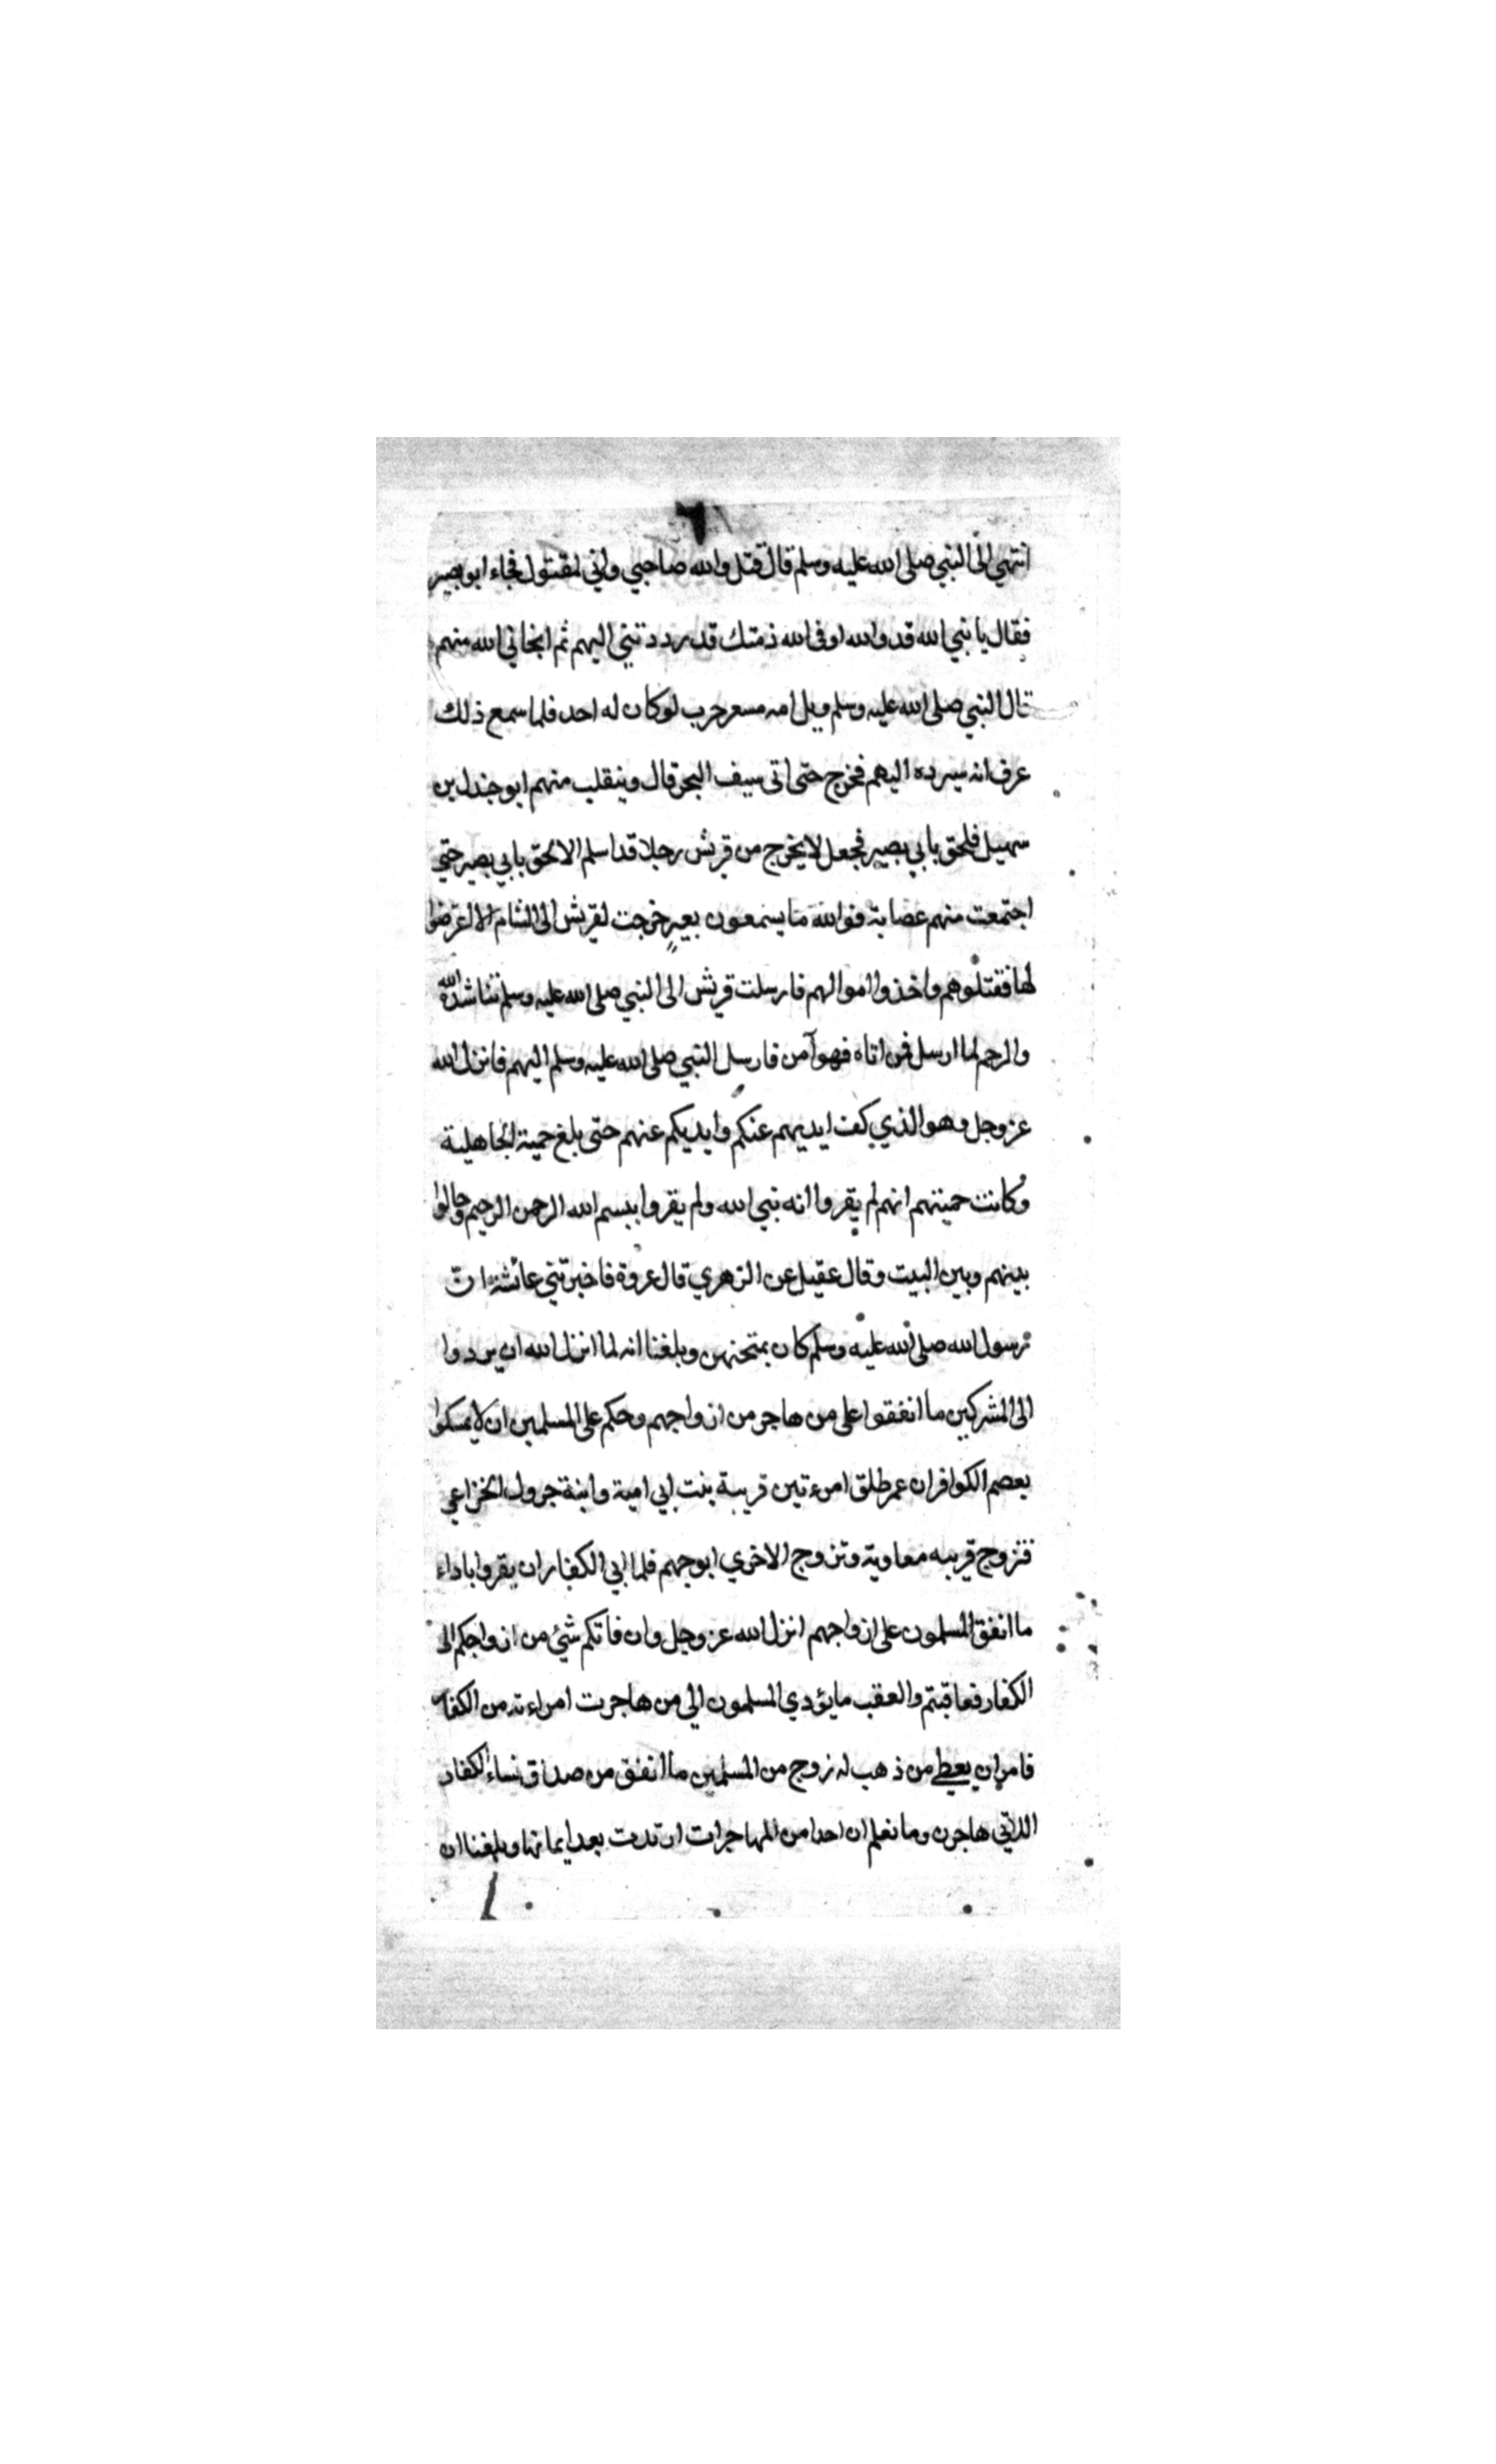 ٦
انتهي الى النبي صلى الله عليه وسلم قال قتل والله صاحبي واني لمقتول فجاء ابو بصير
فقال يا نبي الله قد والله اوفى الله ذمتك قد رددتني اليهم ثم انجاني الله منهم
قال النبي صلى الله عليه وسلم ويل امه مسعر حرب لو كان له احد فلما سمع ذلك
عرف انه سيرده اليهم فخرج حتى اتى سيف البحر قال وينقلب منهم ابو جندل بن
سهيل فلحق بابي بصير فجعل لا يخرج من قريش رجلا قد اسلم الا لحق بابي بصير حتي
اجتمعت منهم عصابة فوالله ما يسمعون بعير خرجت لقريش الى الشام الا اعترضوا
لها فقتلوهم واخذوا اموالهم فارسلت قريش الى النبي صلى الله عليه وسلم تناشده الله
والرحم لما ارسل فمن اتاه فهو آمن فارسل النبي صلى الله عليه وسلم اليهم فانزل الله
عز وجل وهو الذي كف ايديهم عنكم وايديكم عنهم حتى بلغ حمية الجاهلية
وكانت حميتهم انهم لم يقروا انه نبي الله ولم يقروا ببسم الله الرحمن الرحيم وحالوا
بينهم وبين البيت وقال عقيل عن الزهري قال عروة فاخبرتني عائشة ان
رسول الله صلى الله عليه وسلم كان يمتحنهن وبلغنا انه لما انزل الله ان يردوا
الى المشركين ما انفقوا على من هاجر من ازواجهم وحكم على المسلمين ان لا يمسكوا
بعصم الكوافر ان عمر طلق امرءتين قريبة بنت ابي امية وابنة جرول الخزاعي
فتزوج قريبه معاوية وتزوج الاخري ابو جهم فلما ابي الكفار ان يقروا باداء
ما انفق المسلمون على ازواجهم انزل الله عز وجل وان فاتكم شئ من ازواجكم الى
الكفار فعاقبتم والعقب ما يؤدي المسلمون الي من هاجرت امراءته من الكفار
فامر ان يعطي من ذهب له زوج من المسلمين ما انفق من صداق نساء الكفار
اللاتي هاجرن وما نعلم ان احدا من المهاجرات ارتدت بعد ايمانها وبلغنا ان